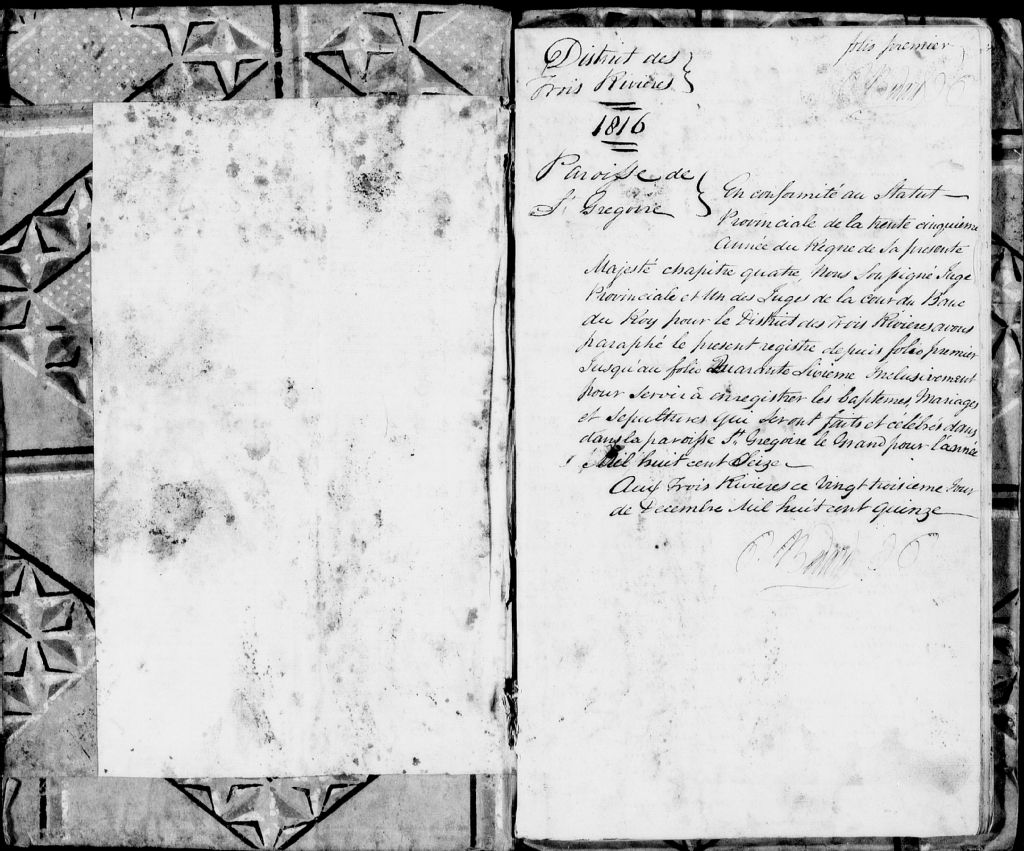 folio premier
District des
Trois Rivieres
1816
Paroisse de
St Gregoire
En conformité au Statut
Provinciale de la trente cinquieme
Année du Règne de Sa presente
Majesté chapitre quatre Nous Soussigné Juge
Provinciale et Un des Juges de la cour du Banc
du Roy pour le District des Trois Rivieres avons
paraphé le present registre depuis folio premier
Jusqu'au folio Quarante Sixieme Inclusivement
pour Servir à enregistrer les baptemes Mariages
et Sepultures qui Seront faits et célébrés dans
dans la paroisse St Gregoire le Grand pour l'année
Mil huit cent Seize
Aux Trois Rivieres ce Vingt troisieme Jour
de Decembre Mil huit cent Quinze